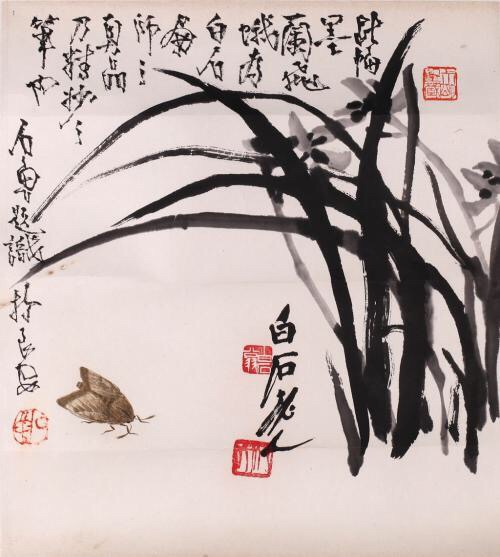 此幅
墨
蘭飛
蛾為
白石
师之
真品
乃精妙之
筆也
石魯題識於長安
白石老人